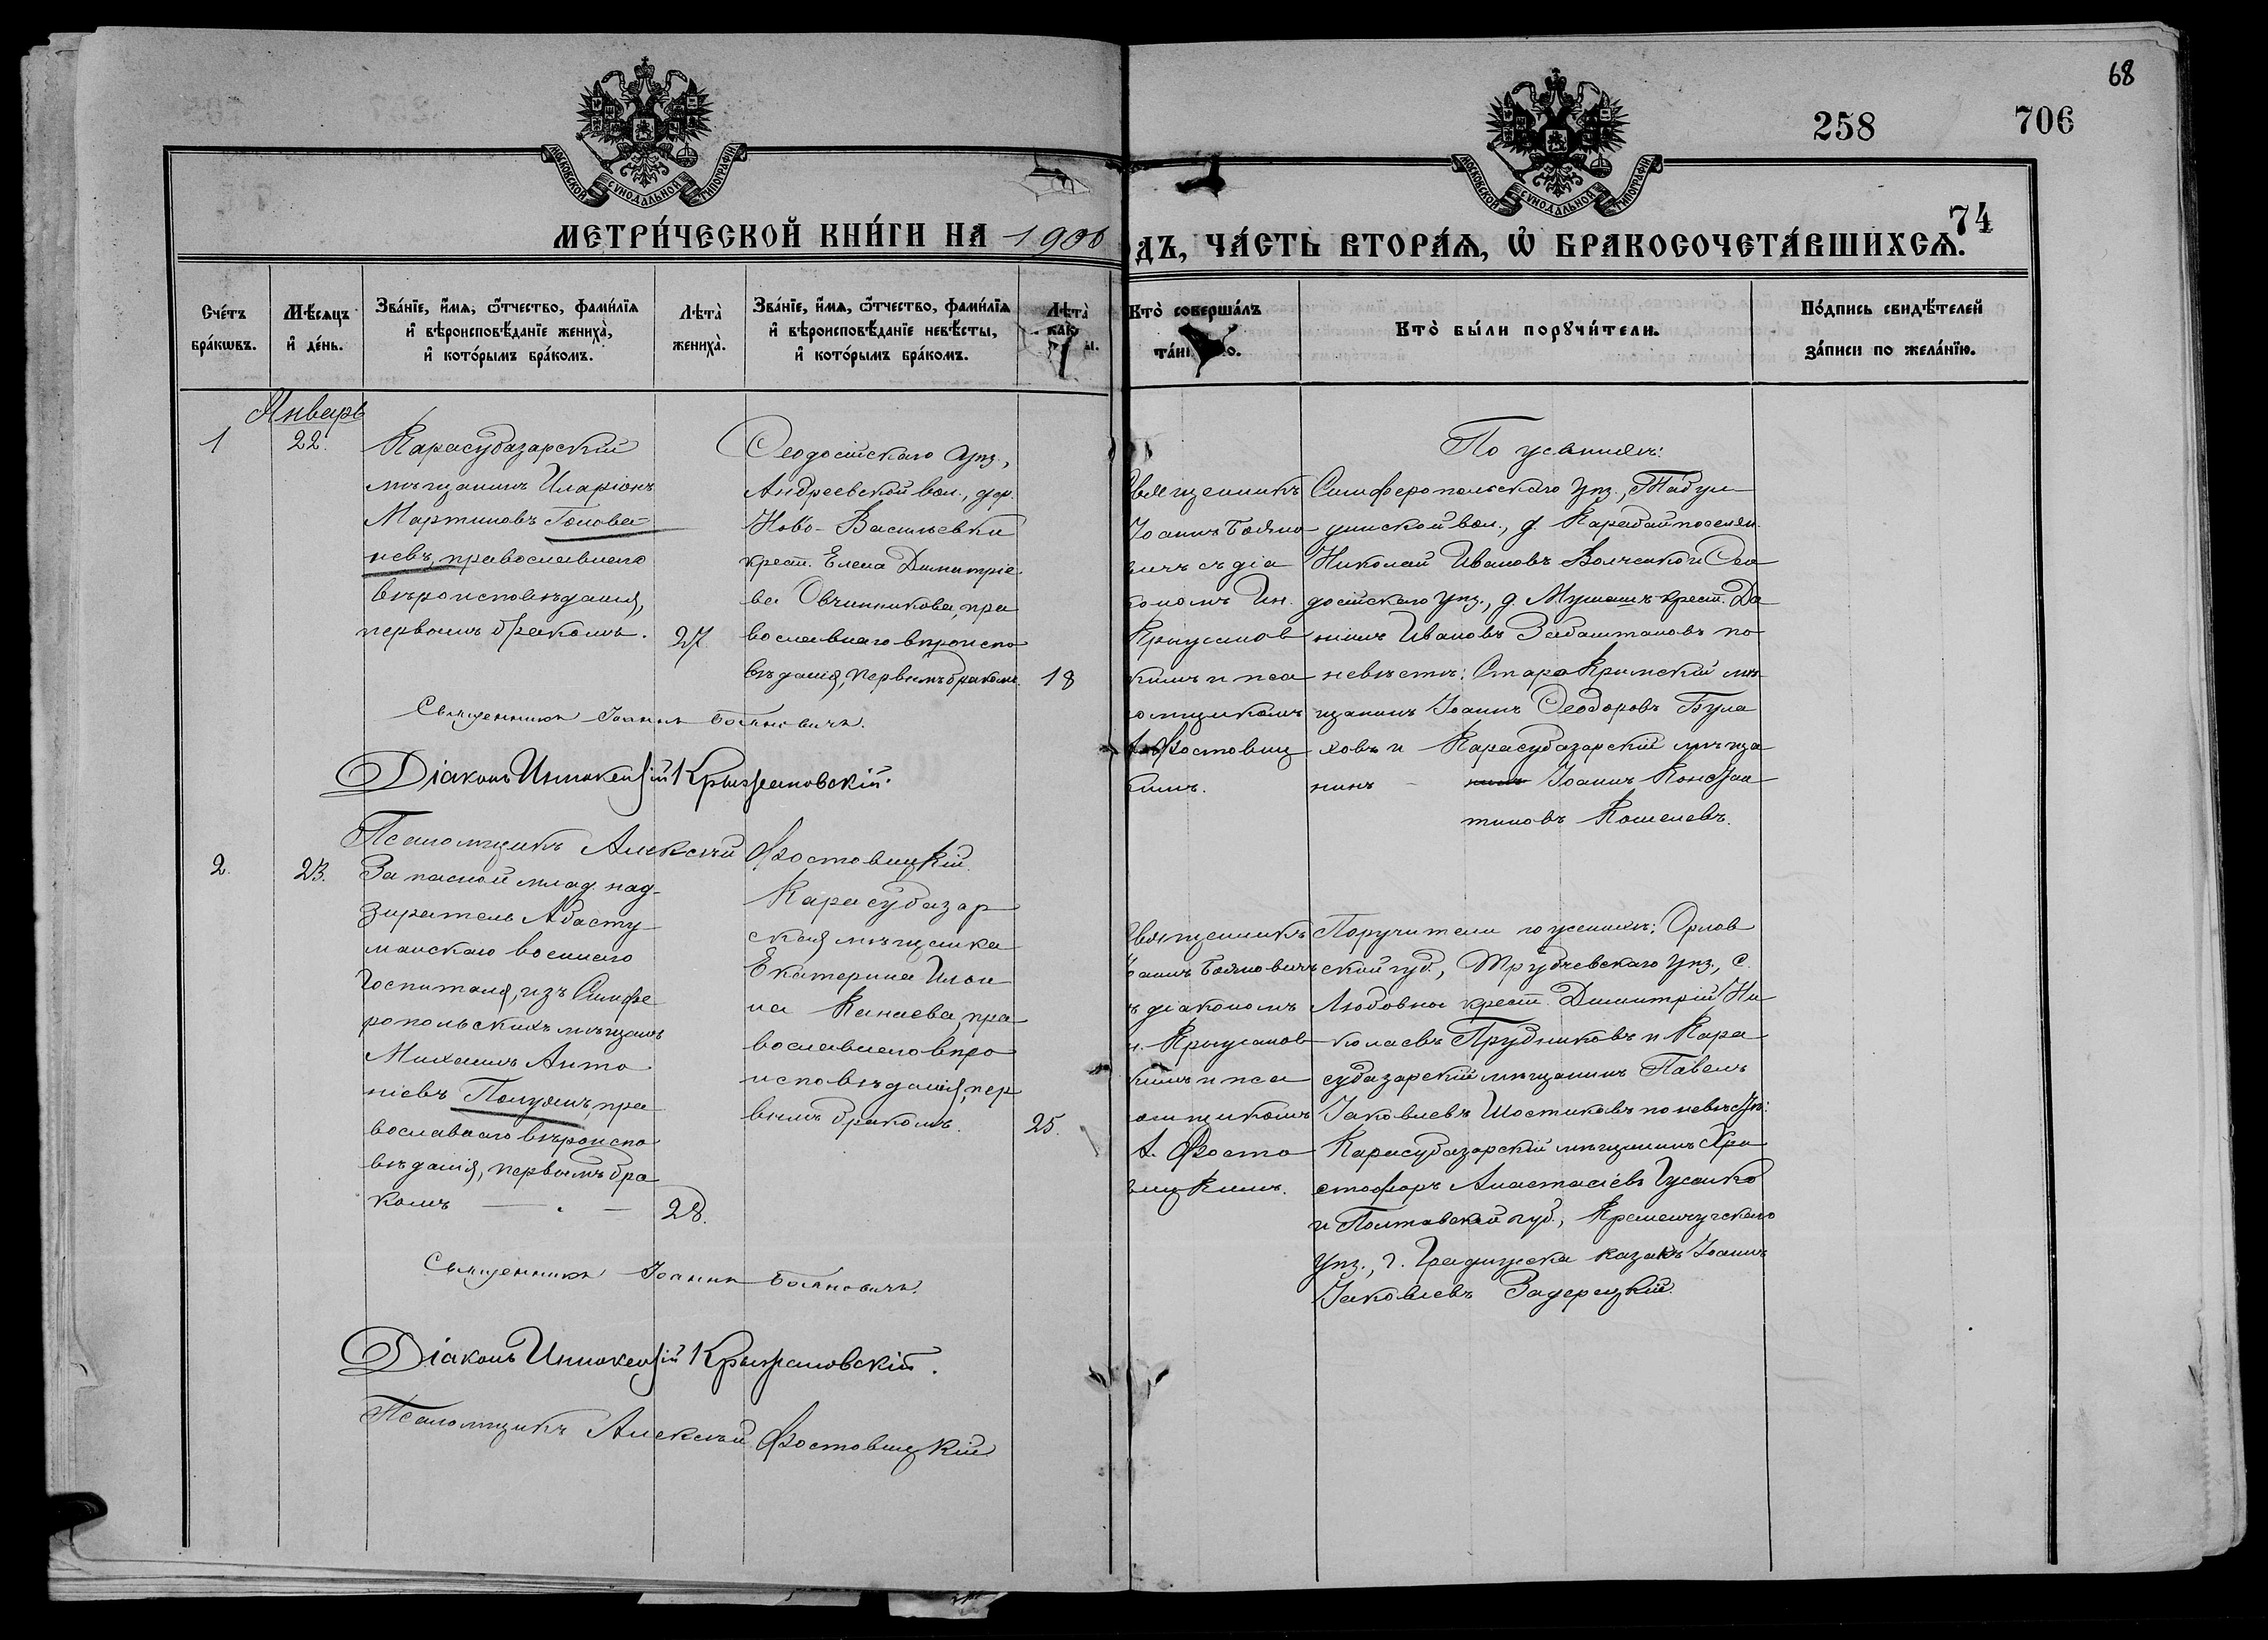 68
258
706
74
МОСКОВСКОЙ СУНОДАЛЬНОЙ ТИПОГРАФІИ
МОСКОВСКОЙ СУНОДАЛЬНОЙ ТИПОГРАФІИ
МЕТРИ́ЧЕСКОЙ КНИ́ГИ НА 1906
ДЪ, ЧА́СТЬ ВТОРА́Ѧ, Ѽ БРАКОСОЧЕТА́ВШИХСѦ.
Сче́тъ
бра́кѡвъ.
Мѣ́сѧцъ
и҆ де́нь.
Зва́нїе, и҆́мѧ, ѿтчество, фами́лїѧ
и҆ вѣроисповѣ́данїе жениха̀,
и҆ кото́рымъ бра́комъ.
Лѣта̀
жениха̀.
Зва́нїе, и҆́мѧ, ѿтчество, фами́лїѧ
и҆ вѣроисповѣ́данїе невѣ́сты,
и҆ кото́рымъ бра́комъ.
Лѣта̀
Кто̀ соверша́лъ
Кто̀ бы́ли порꙋчи́тели.
По́дпись свидѣ́телей
за́писи по жела́нїю.
Январь
1
22.
Карасубазарскій
мѣщанинъ Иларіонъ
Мартиновъ Голова-
невъ, православнаго
вѣроисповѣданія,
первымъ бракомъ.
27.
Ѳеодосійскаго уѣз.,
Андреевской вол., дер.
Ново-Васильевки
крест. Елена Димитріе
ва Овчинникова, пра
вославнаго вѣроиспо
вѣданія, первымъ бракомъ.
18
Священникъ
Іоаннъ Бояно
вичъ съ діа
кономъ Ин.
Крыжанов
скимъ и пса
ломщикомъ
А. Фостовиц
кимъ.
По женихѣ:
Симферопольскаго уѣз., Табул
динской вол., д. Карабай поселян.
Николай Ивановъ Волченко и Ѳео
досійскаго уѣз., д. Мушашъ крест. Да
ніилъ Ивановъ Забаштановъ по
невѣстѣ: Старо Крымскій мѣ
щанинъ Іоаннъ Ѳеодоровъ Була
ховъ и Карасубазарскій мѣща
нинъ - Іоаннъ Констан
тиновъ Кошелевъ.
Священникъ Іоаннъ Бояновичъ.
Діаконъ Иннокентій Крыжановскій.
Псаломщикъ Алексѣй Фостовицкій.
2.
23.
Запасной млад. над-
зиратель Абасту
манскаго военнаго
госпиталя, изъ Симфе
ропольскихъ мѣщанъ
Михаилъ Анто
ніевъ Полуянъ, пра
вославнаго вѣроиспо
вѣданія, первымъ бра
комъ
28.
Карасубазар
ская мѣщанка
Екатерина Ильи
на Канаева, пра
вославнаго вѣро
исповѣданія, пер
вымъ бракомъ.
25.
Священникъ
Іоаннъ Бояновичъ
съ діакономъ
Ин. Крыжанов
скимъ и пса
ломщикомъ
А. Фосто
вицкимъ.
Поручители по женихѣ: Орлов
ской губ., Трубчевскаго уѣз., с.
Любовны крест. Димитрій Ни
колаевъ Прудниковъ и Кара
субазарскій мѣщанинъ Павелъ
Іаковлевъ Шостиковъ по невѣстѣ:
Карасубазарскій мѣщанинъ Хри
стофоръ Анастасіевъ Гусенко
и Полтавской губ., Кременчугскаго
уѣз., г. Градижска казакъ Іоаннъ
Іаковлевъ Задерецкій.
Священникъ Іоаннъ Бояновичъ.
Діаконъ Иннокентій Крыжановскій.
Псаломщикъ Алексѣй Фостовицкій